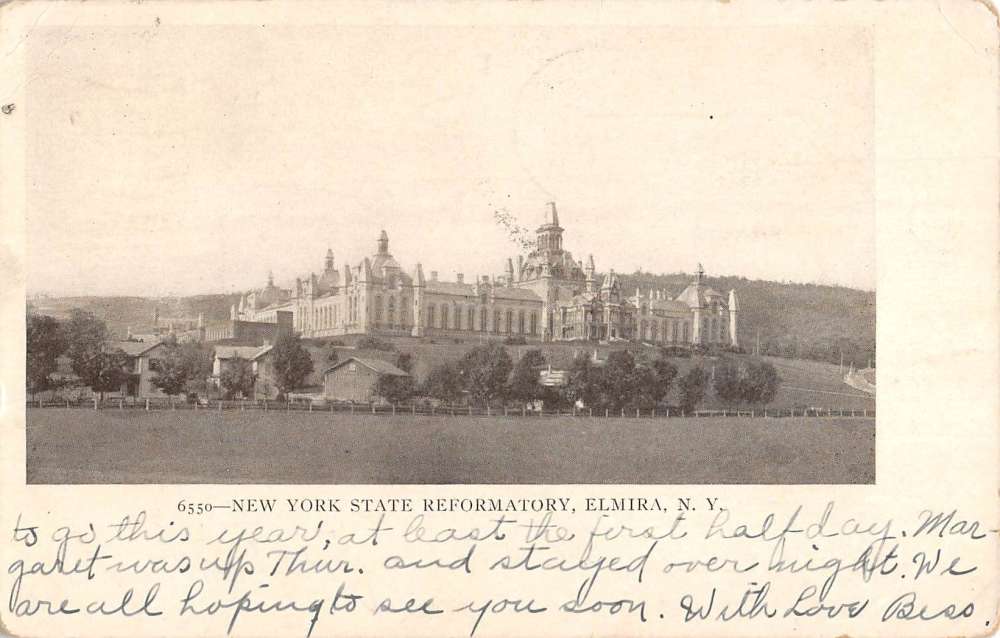 6550—NEW YORK STATE REFORMATORY, ELMIRA, N. Y.
to go this year, at least the first half day. Mar-
garet was up Thur. and stayed over night. We
are all hoping to see you soon. With Love Bess.